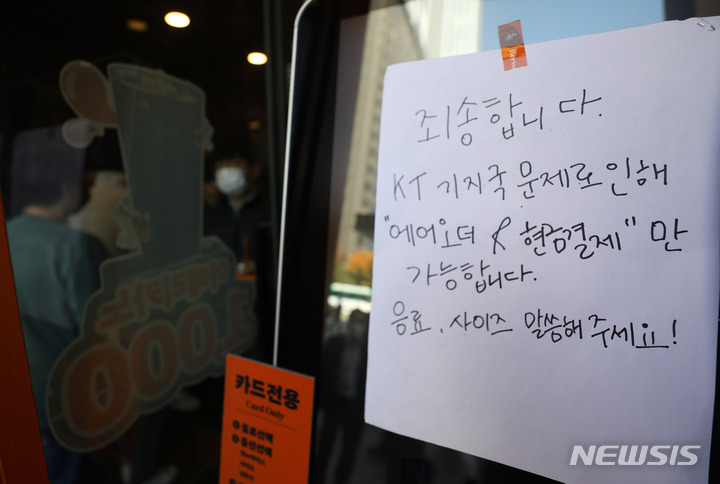 죄송합니다.
KT 기지국 문제로 인해
"에어오더 & 현금결제" 만
가능합니다.
음료, 사이즈 말씀해 주세요!
카드전용
Card Only
음료선택
옵션선택
1,000
NEWSIS